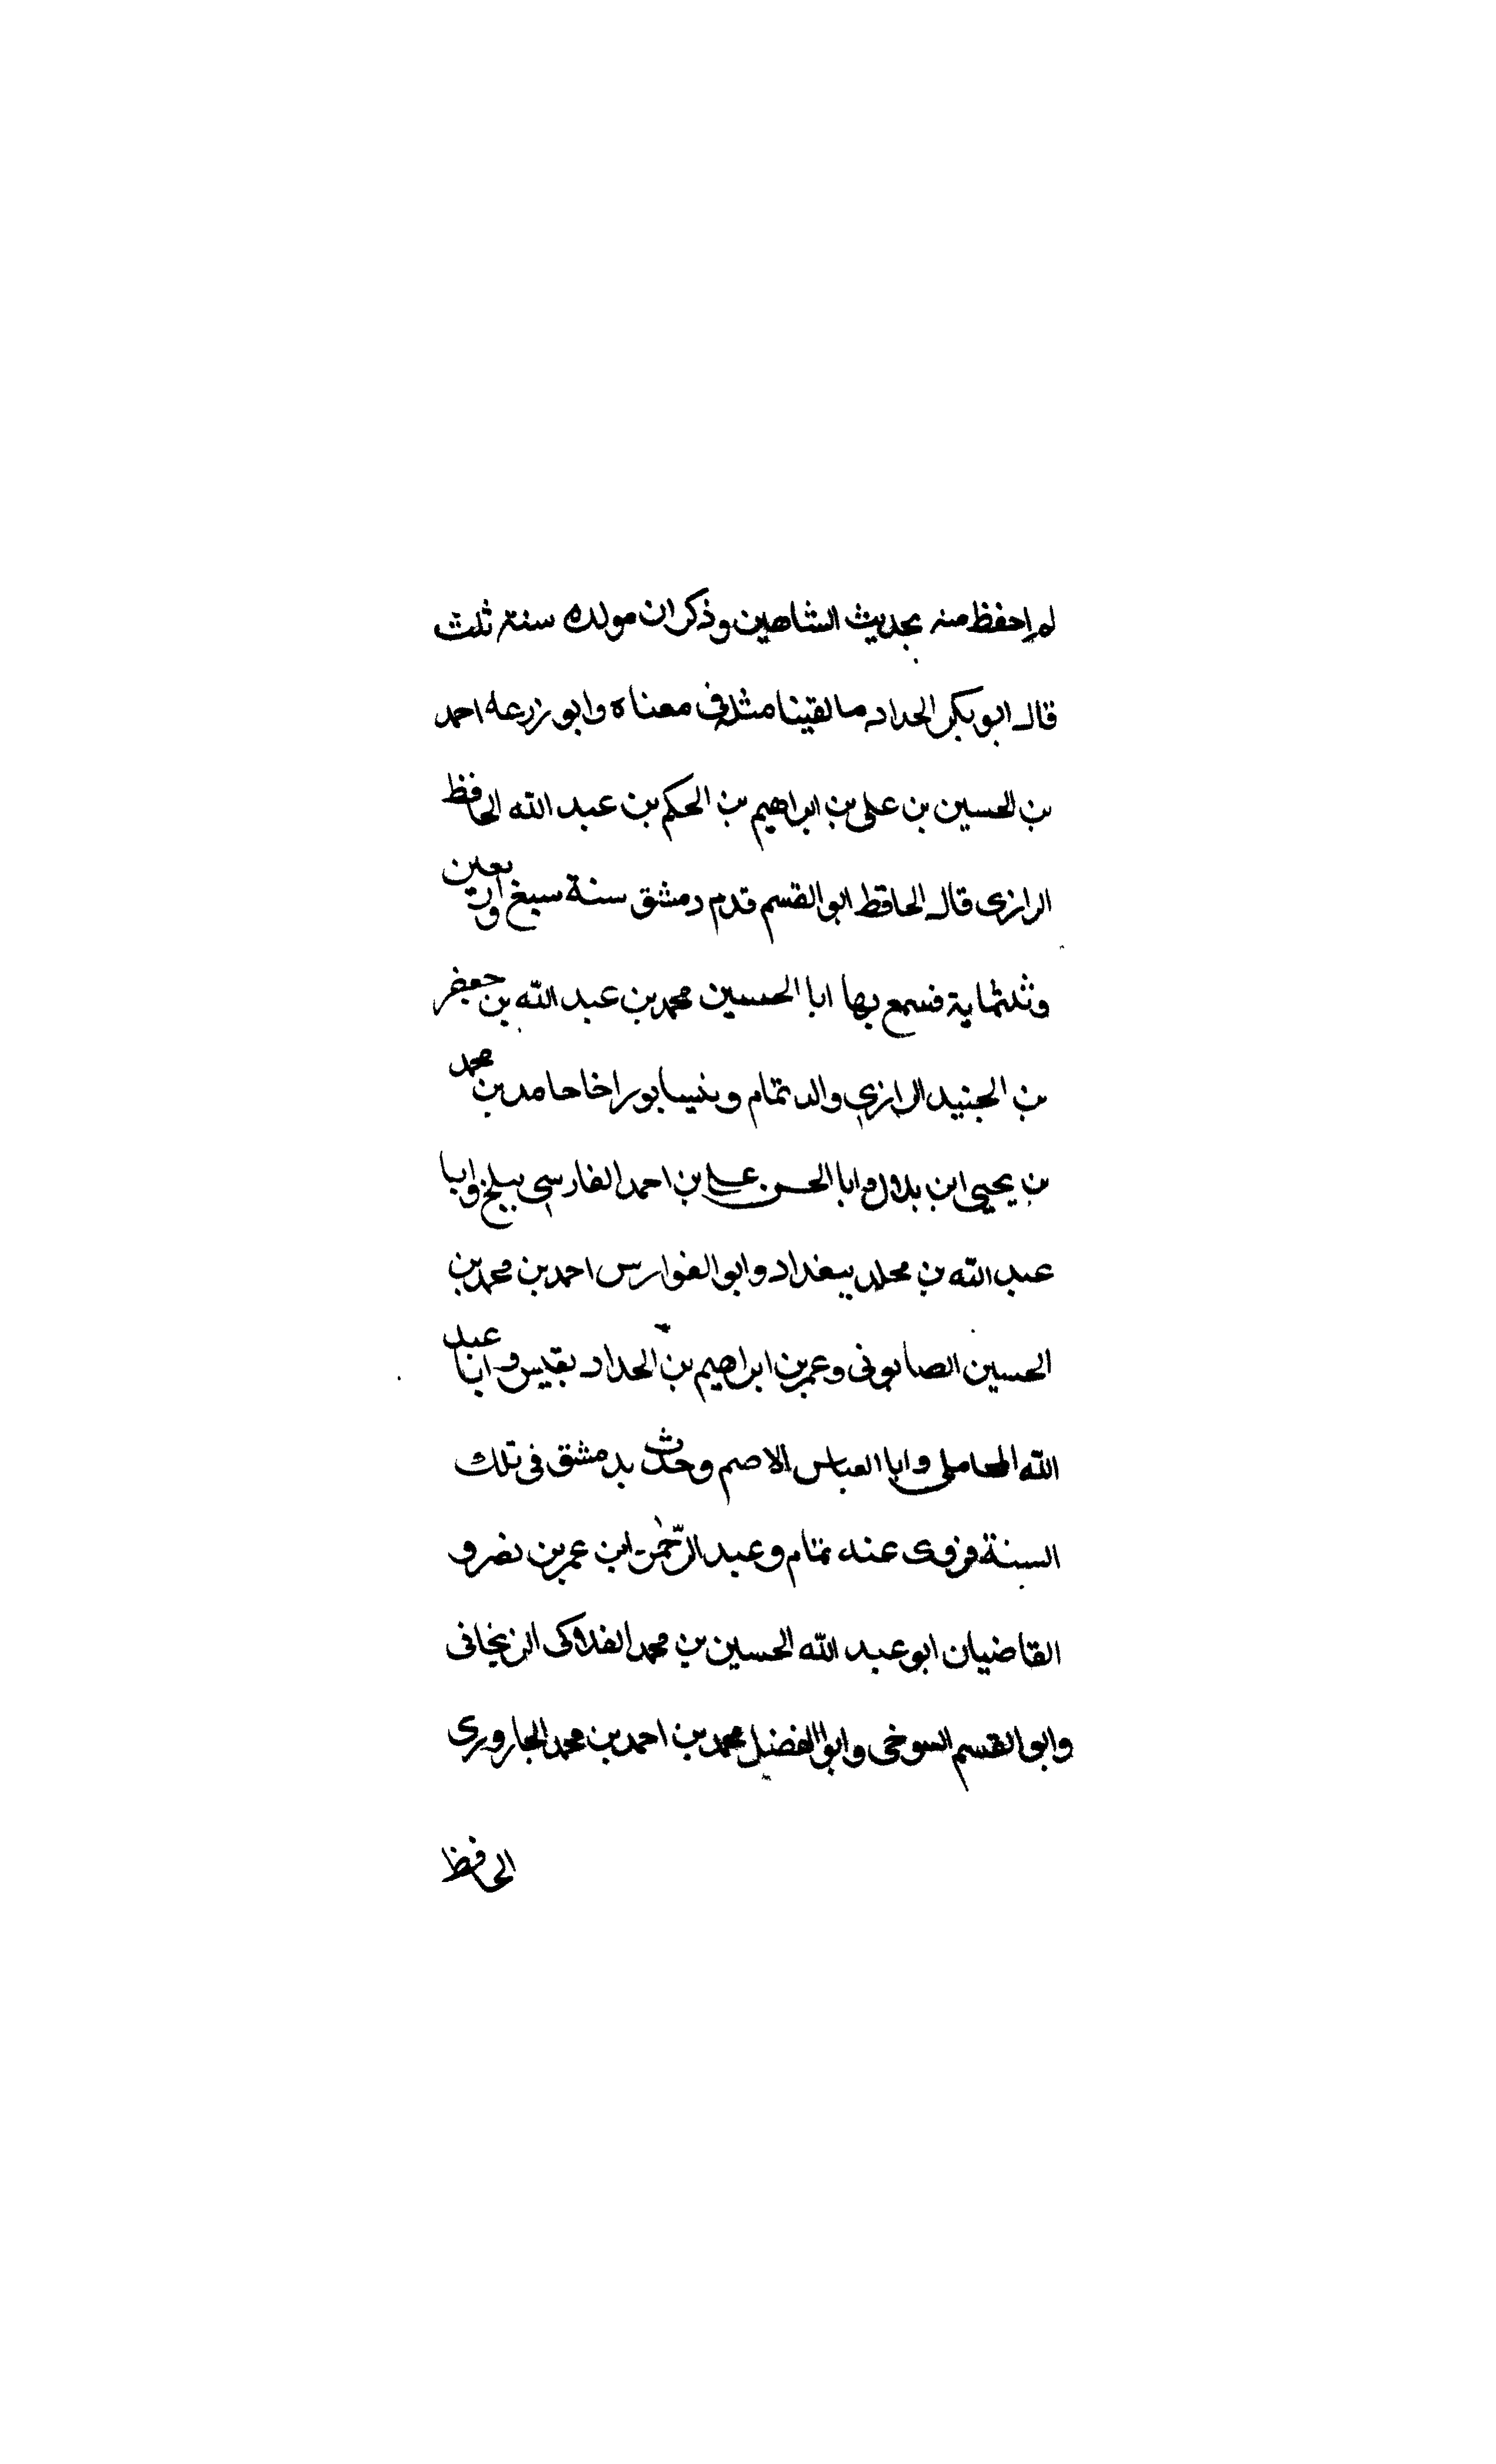 لم احفظ منه بحديث الشاهين وذكر ان مولده سنة ثلث
قال ابو بكر الحداد ما لقينا مثله فى معناه وابو زرعه احمد
بن الحسين بن على بن ابراهيم بن الحكم بن عبد الله الحافظ
الرازى قال الحافظ ابو القسم قدم دمشق سنة سبع واربعين
وثلثماية فسمع بها ابا الحسين محمد بن عبد الله بن جعفر
بن الجنيد الرازي والد تمام وبنيسابور اخا حامد بن محمد
بن يحيى ابن بلال وابا الحسن على بن احمد الفارسى ببلخ وابا
عبد الله بن مخلد ببغداد وابو الفوارس احمد بن محمد بن
الحسين الصابونى وعمر بن ابراهيم بن الحداد بقيس وابا عبد
الله المحاملى وابا العباس الاصم وحدث بدمشق فى تلك
السنة فروى عنه تمام وعبد الرحمن ابن عمر بن نصر و
القاضيان ابو عبد الله الحسين بن محمد الفلاكى الزنجانى
وابو القسم التنوخى وابو الفضل محمد بن احمد بن محمد الجارورى
الحافظ